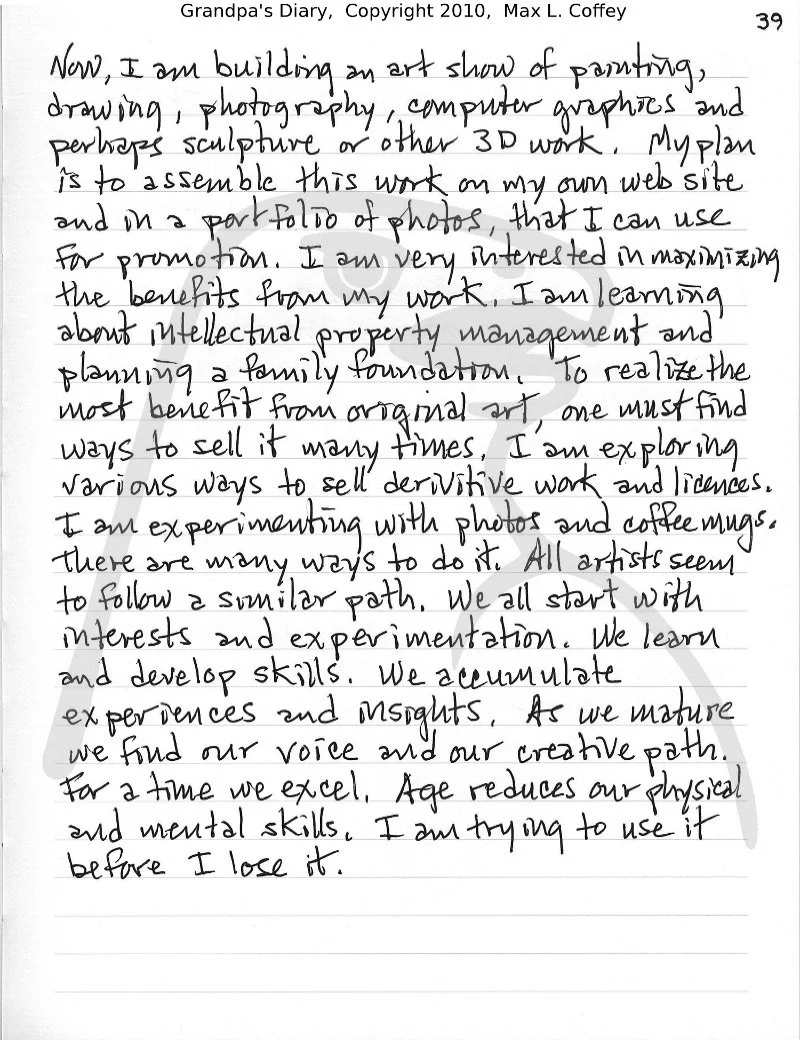 Grandpa's Diary, Copyright 2010, Max L. Coffey
39
Now, I am building an art show of painting,
drawing, photography, computer graphics and
perhaps sculpture or other 3D work. My plan
is to assemble this work on my own web site
and in a portfolio of photos, that I can use
for promotion. I am very interested in maximizing
the benefits from my work. I am learning
about intellectual property management and
planning a family foundation. To realize the
most benefit from original art, one must find
ways to sell it many times. I am exploring
various ways to sell derivitive work and licences.
I am experimenting with photos and coffee mugs.
There are many ways to do it. All artists seem
to follow a similar path. We all start with
interests and experimentation. We learn
and develop skills. We accumulate
experiences and insights. As we mature
we find our voice and our creative path.
For a time we excel. Age reduces our physical
and mental skills. I am trying to use it
before I lose it.